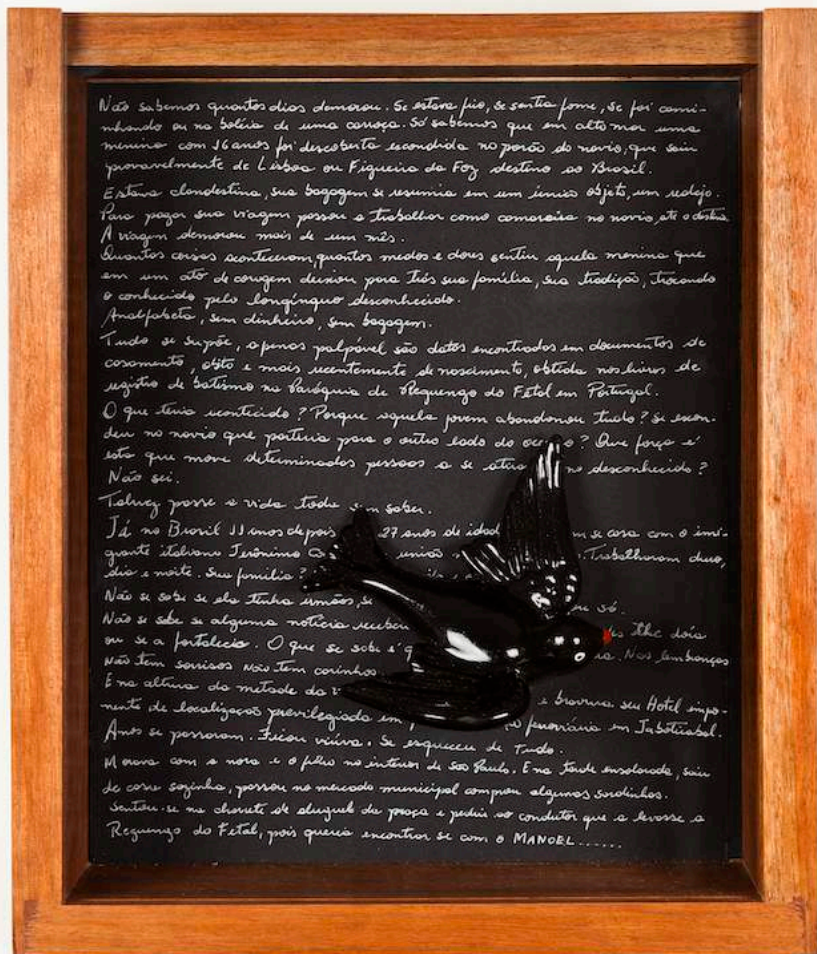 Não sabemos quantos dias demorou. Se estava frio, se sentia fome, se foi cami-
nhando ou na boléia de uma carroça. Só sabemos que em alto mar uma
menina com 16 anos foi descoberta escondida no porão do navio, que saiu
provavelmente de Lisboa ou Figueira da Foz destino ao Brasil.
Estava clandestina, sua bagagem se resumia em um único objeto, um
Para pagar sua viagem passou a trabalhar como camareira no navio, até o destino
A viagem demorou mais de um mês.
Quantas coisas aconteceram, quantos medos e dores sentiu aquela menina que
em um ato de coragem deixou para trás sua família, sua tradição, trocando
o conhecido pelo longínquo desconhecido.
Analfabeta, sem dinheiro, sem bagagem.
Tudo se supõe, apenas palpável são datas encontradas em documentos de
casamento, obito e mais recentemente de nascimento, obtida nos livros de
registro de batismo na Paróquia de Reguengo do Fetal em Portugal.
O que teria acontecido? Porque aquela jovem abandonou tudo? Se escon-
deu no navio que partiria para o outro lado do? Que força é
esta que move determinadas pessoas a se no desconhecido?
Não sei.
Talvez passe a vida toda sem saber.
Já no Brasil 11 anos depois 27 anos de se casa com o imi-
grante italiano Jerônimo união Trabalharam duro,
dia e noite. Sua família?
Não se sabe se ela tinha irmãos, se só.
Não se sabe se alguma notícia lhe doía
ou se a fortalecia. O que se sabe é Nas lembranças
não tem sorrisos não tem carinhos
E na altura da metade da e bravura seu Hotel impo-
nente de localização previlegiada em ferroviária em Jaboticabal.
Anos se passaram. Ficou viúva. Se esqueceu de tudo.
Morava com a nora e o filho no interior de São Paulo. E na tarde ensolarada, saiu
de casa sozinha, passou no mercado municipal comprou algumas sardinhas.
Sentou-se na charrete de aluguel da praça e pediu ao condutor que a levasse a
Reguengo do Fetal, pois queria encontrar se com o MANOEL......